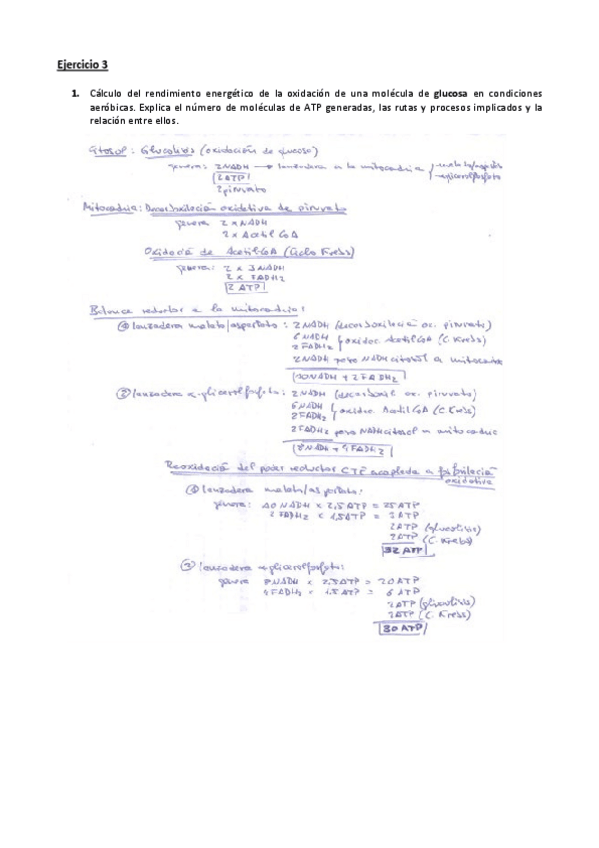 Ejercicio 3
1. Cálculo del rendimiento energético de la oxidación de una molécula de glucosa en condiciones
aeróbicas. Explica el número de moléculas de ATP generadas, las rutas y procesos implicados y la
relación entre ellos.
Citosol: Glucolisis (oxidación de glucosa)
genera: 2 NADH → lanzadera a la mitocondria malato/aspartato
2 ATP α-glicerolfosfato
2 piruvato
Mitocondria: Descarboxilación oxidativa de piruvato
genera 2 x NADH
2 x Acetil CoA
Oxidación de Acetil CoA (Ciclo Krebs)
genera: 2 x 3 NADH
2 x FADH2
2 ATP
Balance reductor a la mitocondria:
① lanzadera malato/aspartato: 2 NADH (descarboxilación ox. piruvato)
6 NADH
2 FADH2 oxidac. Acetil CoA (C. Krebs)
2 NADH poro NADH citosol a mitocondria
10 NADH + 2 FADH2
② lanzadera α-glicerolfosfato: 2 NADH (descarboxil ox. piruvato)
6 NADH
2 FADH2 oxidac. Acetil CoA (C. Krebs)
2 FADH2 poro NADH citosol a mitocondr
8 NADH + 4 FADH2
Reoxidación del poder reductor CTE acoplada a fosforilación
oxidativa
① lanzadera malato/aspartato:
genera: 10 NADH x 2,5 ATP = 25 ATP
2 FADH2 x 1,5 ATP = 3 ATP
2 ATP (glucolisis)
2 ATP (C. Krebs)
32 ATP
② lanzadera α-glicerolfosfato:
genera 8 NADH x 2,5 ATP = 20 ATP
4 FADH2 x 1,5 ATP = 6 ATP
2 ATP (glucolisis)
2 ATP (C. Krebs)
30 ATP